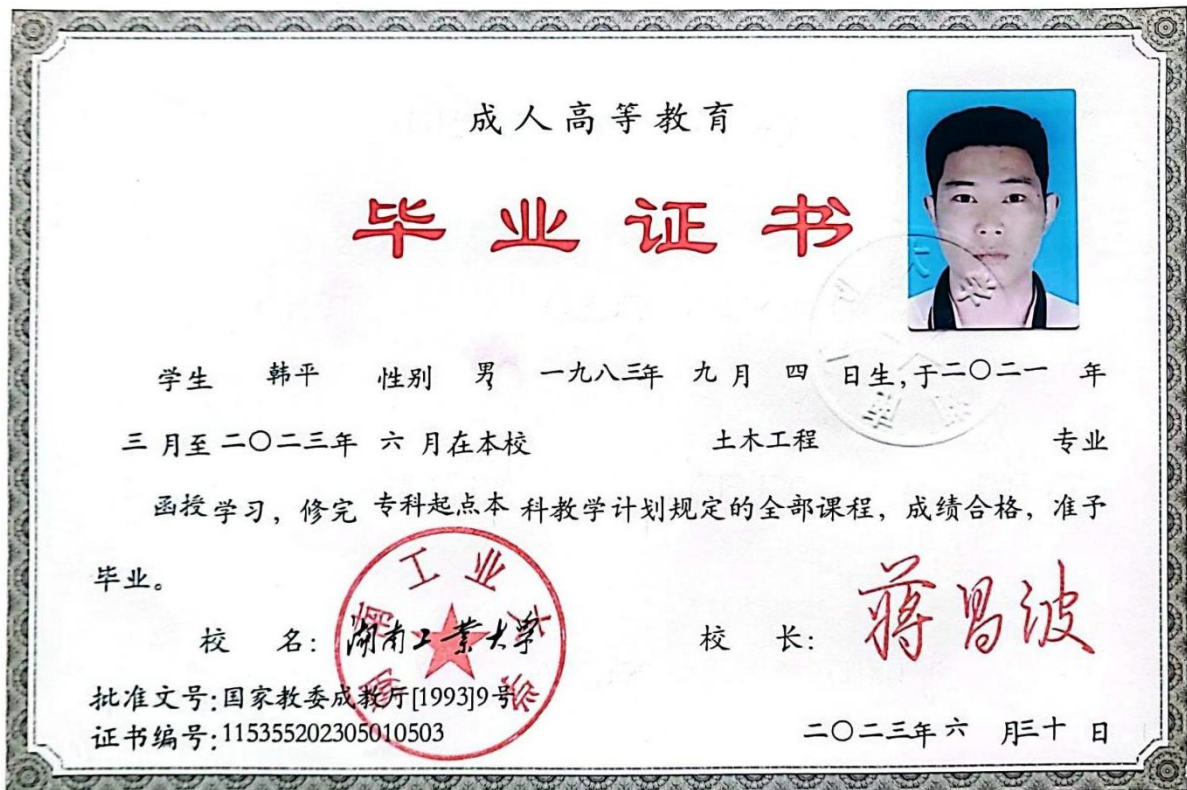 成人高等教育
毕业证书
学生 韩平 性别 男 一九八三年 九 月 四 日生,于二〇二一 年
三 月至 二〇二三年 六 月在本校 土木工程 专业
函授 学习，修完 专科起点本 科教学计划规定的全部课程，成绩合格，准予
毕业。
湖南工业大学
校 名：湖南工业大学 校 长：蒋昌波
批准文号：国家教委成教厅[1993]9号
证书编号：115355202305010503
二〇二三年 六 月三十 日